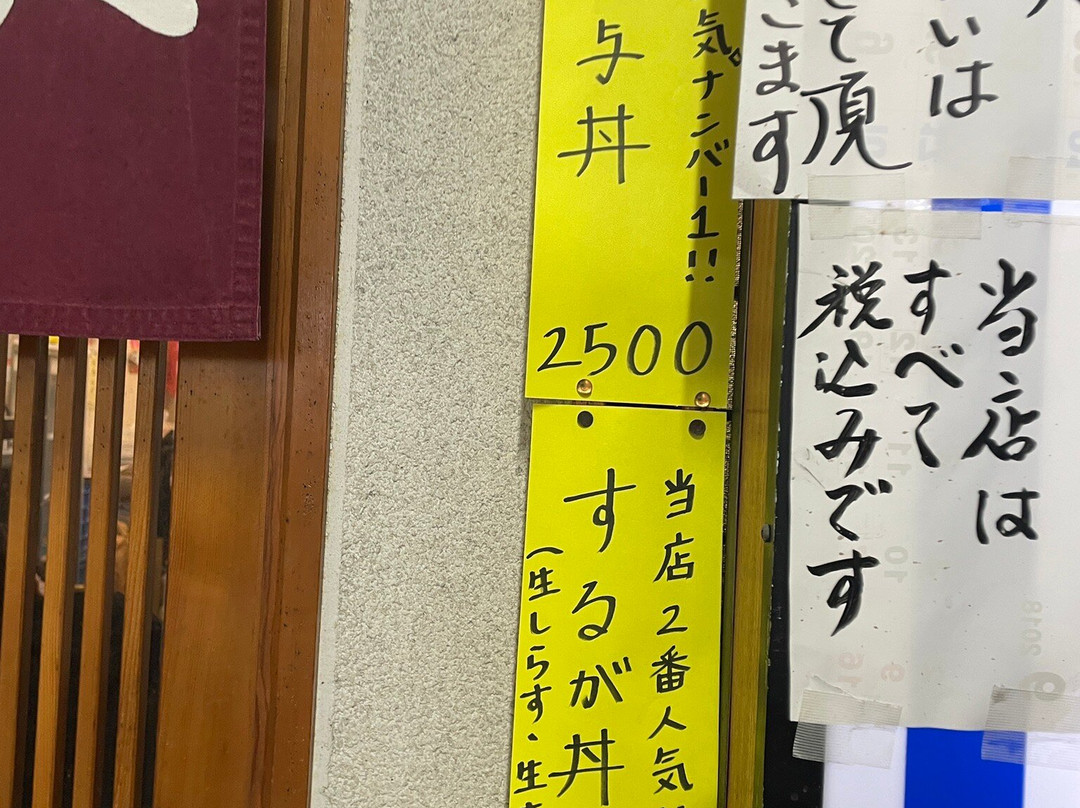 気ナンバー1!!
与丼
2500
当店2番人気
するが丼
(生しらす、生
いは
て頂
ざます
当店は
すべて
税込みです